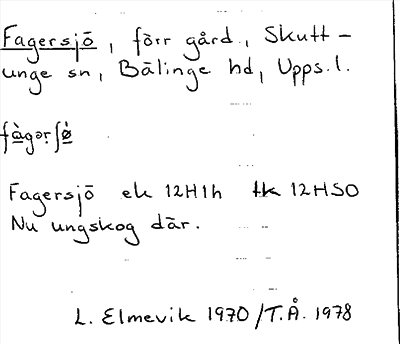 Fagersjö, förr gård, Skutt-
unge sn, Bälinge hd, Upps. l.
fàgərʃø̀
Fagersjö ek 12H1h tk 12HSO
Nu ungskog där.
L. Elmevik 1970 /T.Å. 1978